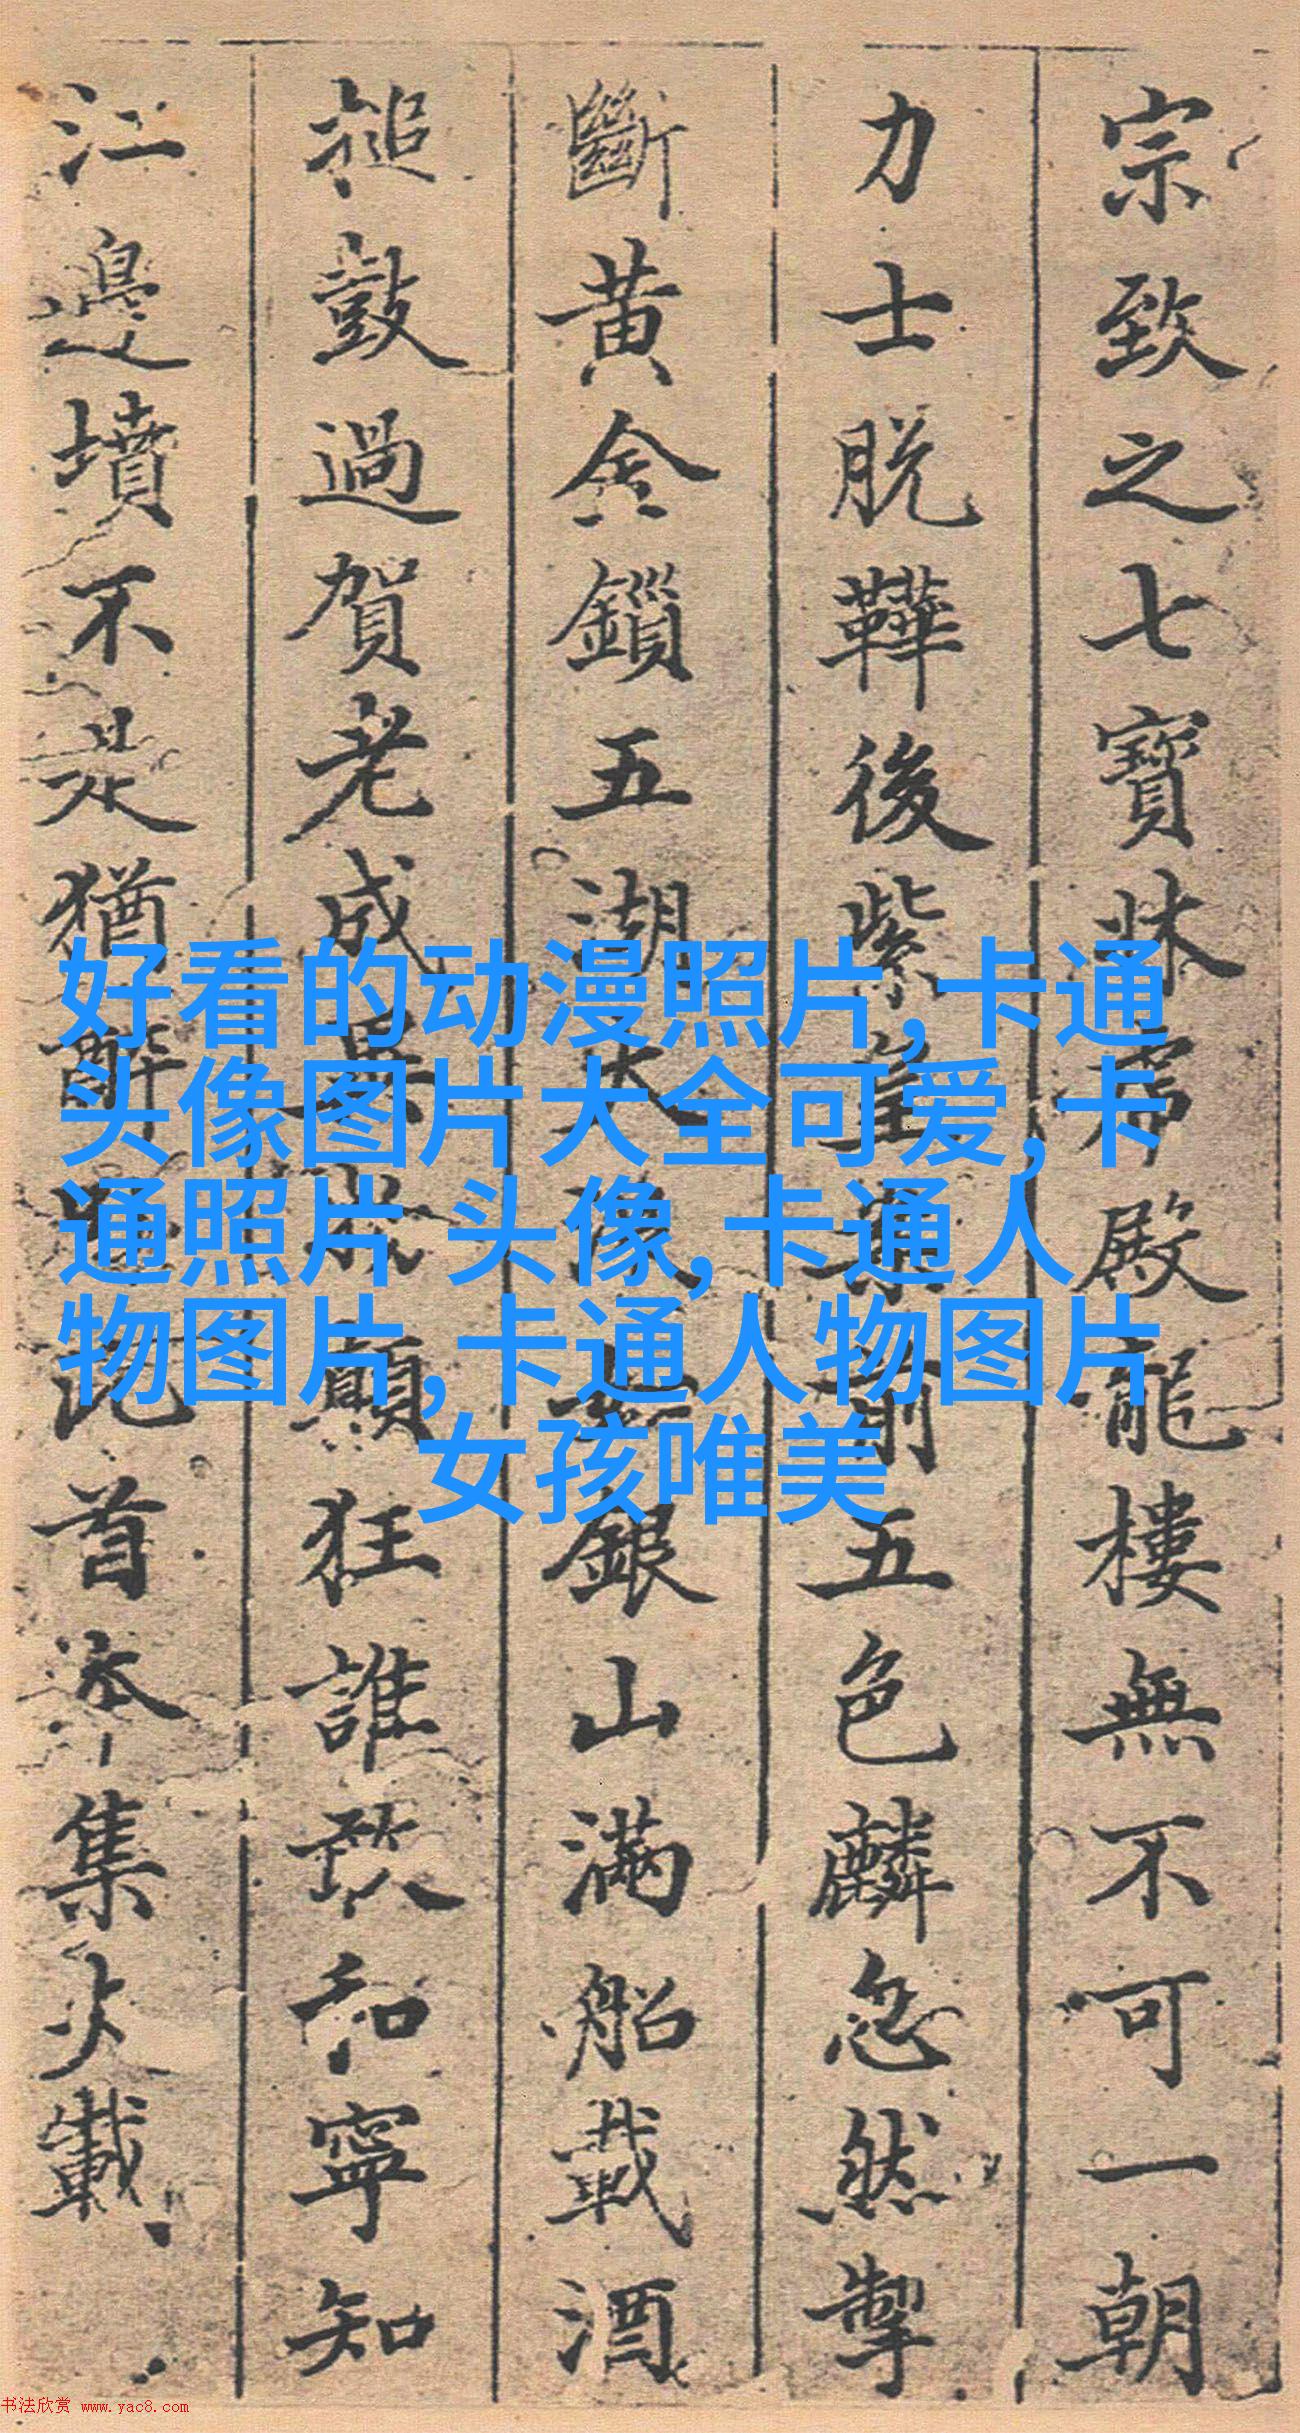 宗致之七寶牀殿龍樓無不可一朝
力士脫鞾後紫前五色麟忽然掣
斷黃金鎖五湖大浪如銀山滿船載酒
搥鼓過賀老成異物顛狂誰敢和寧知
江邊墳不是猶醉眠此首本集失載
好看的动漫照片,卡通
头像图片大全可爱,卡
通照片 头像,卡通人
物图片,卡通人物图片
女孩唯美
书法欣赏 www.yac8.com